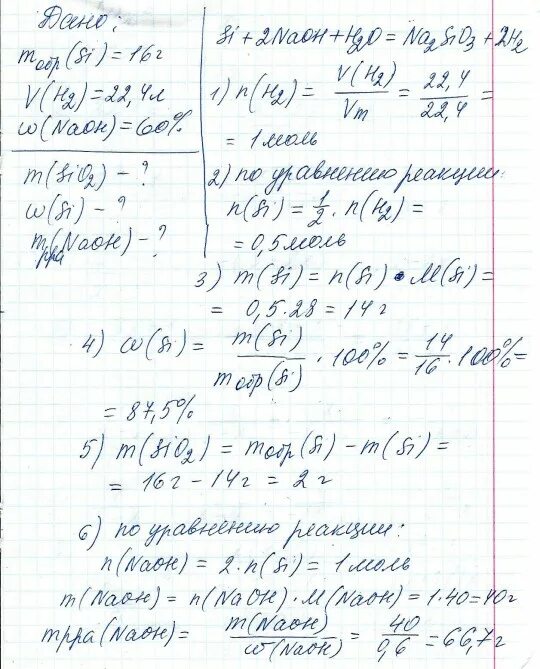 Дано:
m обр (Si) = 16 г
V(H₂) = 22,4 л
ω(NaOH) = 60%
m(SiO₂) - ?
ω(Si) - ?
m р-ра (NaOH) - ?
Si + 2NaOH + H₂O = Na₂SiO₃ + 2H₂
1) n(H₂) = V(H₂) / Vm = 22,4 / 22,4 =
= 1 моль
2) по уравнению реакции:
n(Si) = 1/2 · n(H₂) =
= 0,5 моль
3) m(Si) = n(Si) · M(Si) =
= 0,5 · 28 = 14 г
4) ω(Si) = m(Si) / m обр (Si) · 100% = 14/16 · 100% =
= 87,5%
5) m(SiO₂) = m обр (Si) - m(Si) =
= 16 г - 14 г = 2 г
6) по уравнению реакции:
n(NaOH) = 2 · n(Si) = 1 моль
m(NaOH) = n(NaOH) · M(NaOH) = 1 · 40 = 40 г
m р-ра (NaOH) = m(NaOH) / ω(NaOH) = 40 / 0,6 = 66,7 г